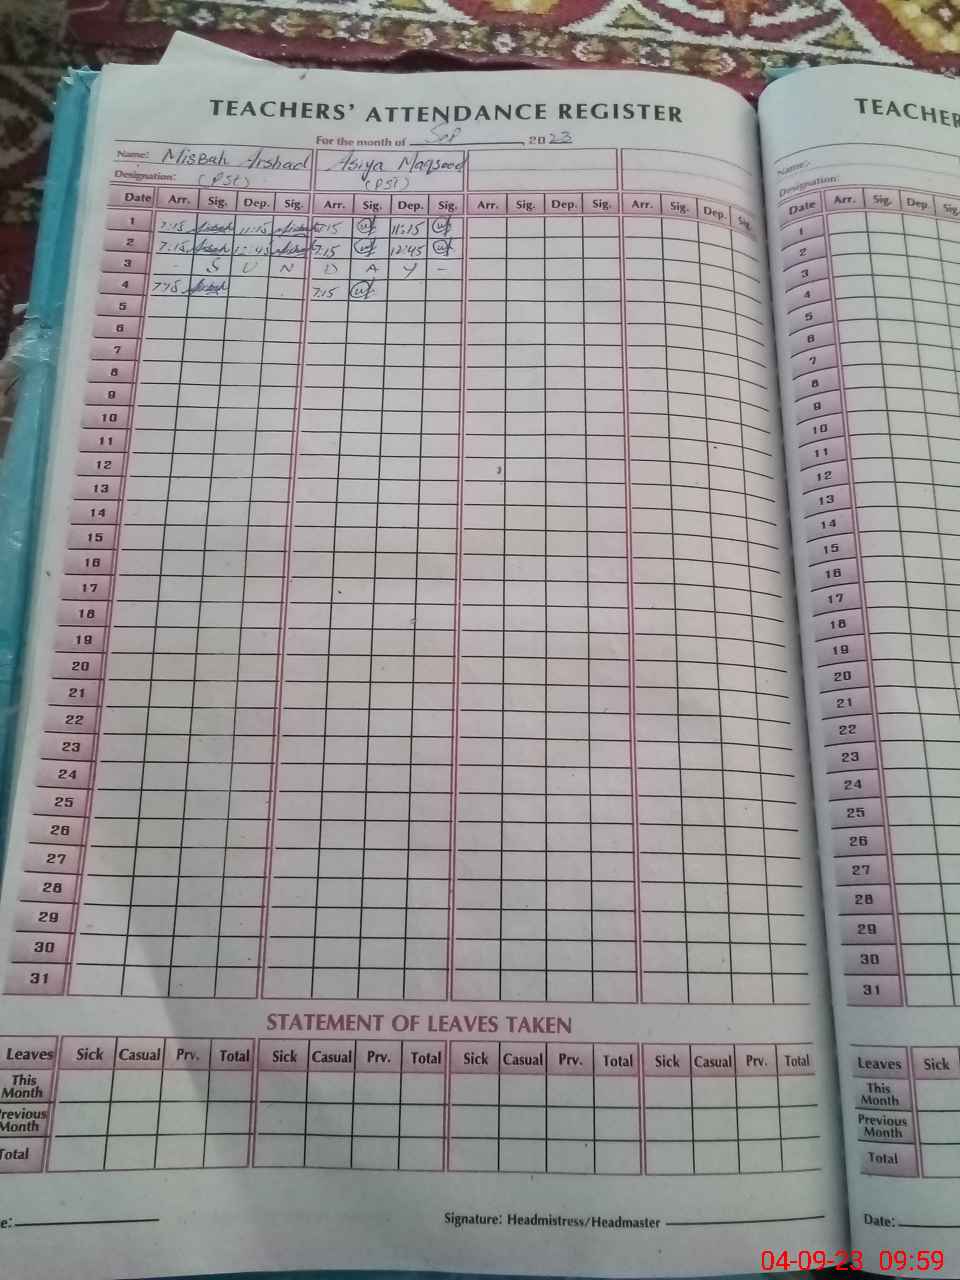 TEACHERS' ATTENDANCE REGISTER
For the month of Sep, 2023
Name: Misbah Arshad Asiya Maqsood
Designation: (PST) (PST)
Date Arr. Sig. Dep. Sig. Arr. Sig. Dep. Sig. Arr. Sig. Dep. Sig. Arr. Sig. Dep. Sig.
1 7:15 Misbah 11:15 Misbah 7:15 11:15
2 7:15 Misbah 12:45 Misbah 7:15 12:45
3 - S U N D A Y -
4 7:15 Misbah 7:15
5
6
7
8
9
10
11
12
13
14
15
16
17
18
19
20
21
22
23
24
25
26
27
28
29
30
31
STATEMENT OF LEAVES TAKEN
Leaves Sick Casual Prv. Total Sick Casual Prv. Total Sick Casual Prv. Total Sick Casual Prv. Total
This
Month
Previous
Month
Total
e:
Signature: Headmistress/Headmaster
TEACHER
Name:
Designation:
Date Arr. Sig. Dep. Sig.
1
2
3
4
5
6
7
8
9
10
11
12
13
14
15
16
17
18
19
20
21
22
23
24
25
26
27
28
29
30
31
Leaves Sick
This
Month
Previous
Month
Total
Date:
04-09-23 09:59